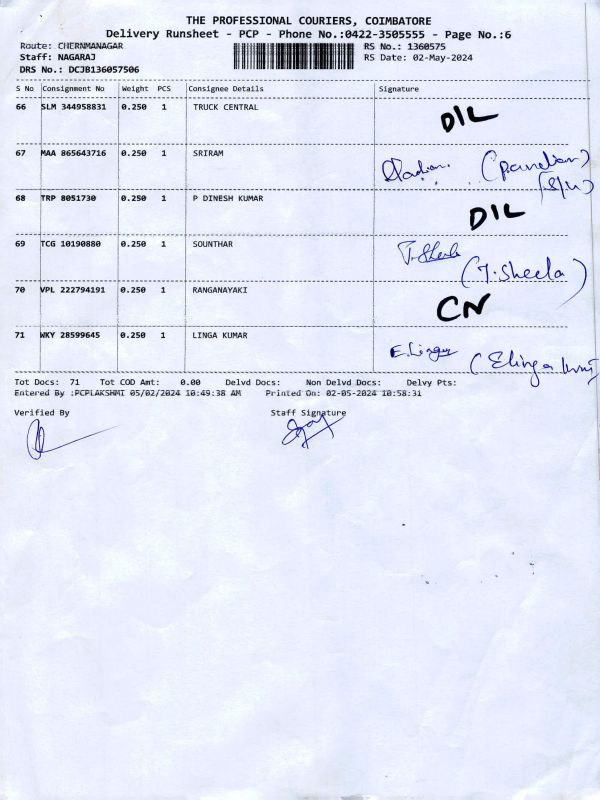 THE PROFESSIONAL COURIERS, COIMBATORE
Delivery Runsheet - PCP - Phone No.:0422-3505555 - Page No.:6
Route: CHERNMANAGAR RS No.: 1360575
Staff: NAGARAJ RS Date: 02-May-2024
DRS No.: DCJB136057506
S No Consignment No Weight PCS Consignee Details Signature
66 SLM 344958831 0.250 1 TRUCK CENTRAL D/L
67 MAA 865643716 0.250 1 SRIRAM (Pandian)
68 TRP 8051730 0.250 1 P DINESH KUMAR D/L
69 TCG 10190880 0.250 1 SOUNTHAR T.Sheela (T.Sheela)
70 VPL 222794191 0.250 1 RANGANAYAKI CN
71 WKY 28599645 0.250 1 LINGA KUMAR E.Linga (Elinga
Tot Docs: 71 Tot COD Amt: 0.00 Delvd Docs: Non Delvd Docs: Delvy Pts:
Entered By :PCPLAKSHMI 05/02/2024 10:49:38 AM Printed On: 02-05-2024 10:58:31
Verified By Staff Signature